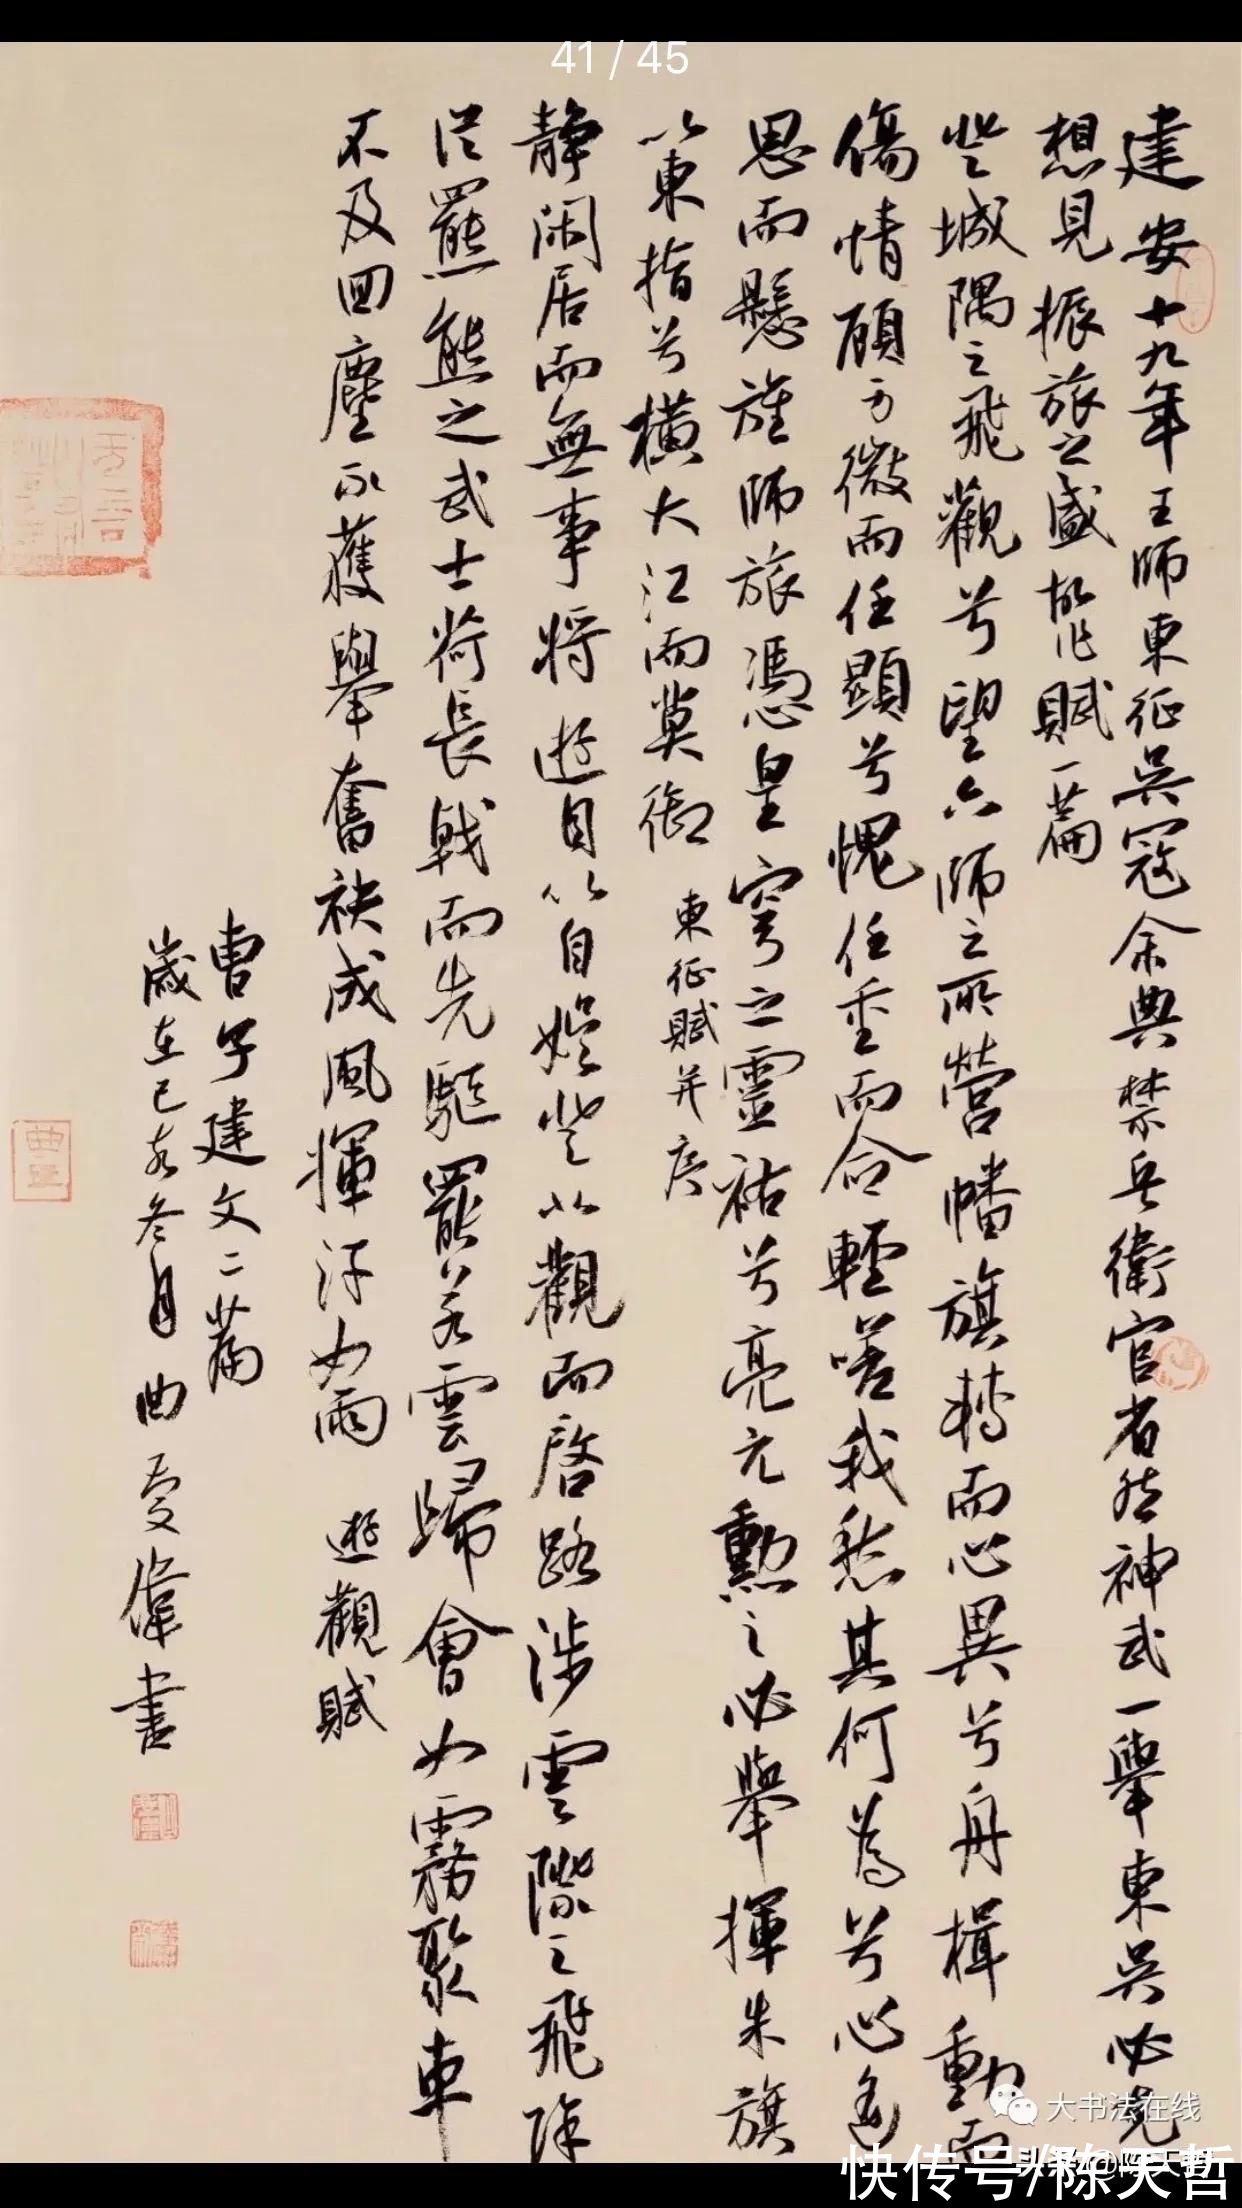 41 / 45
建安十九年王師東征吳寇余典禁兵衛官省然神武一舉東吳必克
想見振旅之盛故作賦一篇
登城隅之飛觀兮望六師之所營幡旗轉而心異兮舟楫動而
傷情顧身微而任顯兮愧任重而命輕嗟我愁其何為兮心遙
思而懸旌師旅憑皇穹之靈祐兮亮元勳之必舉揮朱旗
以東指兮橫大江而莫御 東征賦并序
静閑居而無事將遊目以自娛登北觀而啓路涉雲際之飛除
從羆熊之武士荷長戟而先驅罷若雲歸會如霧聚車
不及回塵不獲舉奮袂成風揮汗如雨 遊觀賦
曹子建文二篇
歲在己亥冬月曲慶偉書
大书法在线
快传号/陈天哲